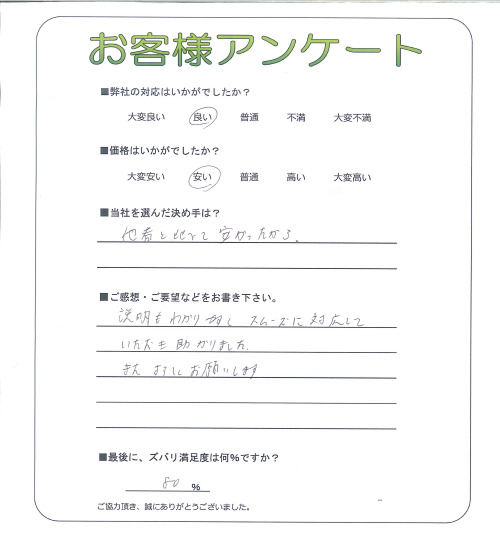 お客様アンケート
■弊社の対応はいかがでしたか？
大変良い 良い 普通 不満 大変不満
■価格はいかがでしたか？
大変安い 安い 普通 高い 大変高い
■当社を選んだ決め手は？
他者と比べて安かったから。
■ご感想・ご要望などをお書き下さい。
説明もわかり易く スムーズに対応して
いただき助かりました。
また よろしくお願いします
■最後に、ズバリ満足度は何％ですか？
80 ％
ご協力頂き、誠にありがとうございました。